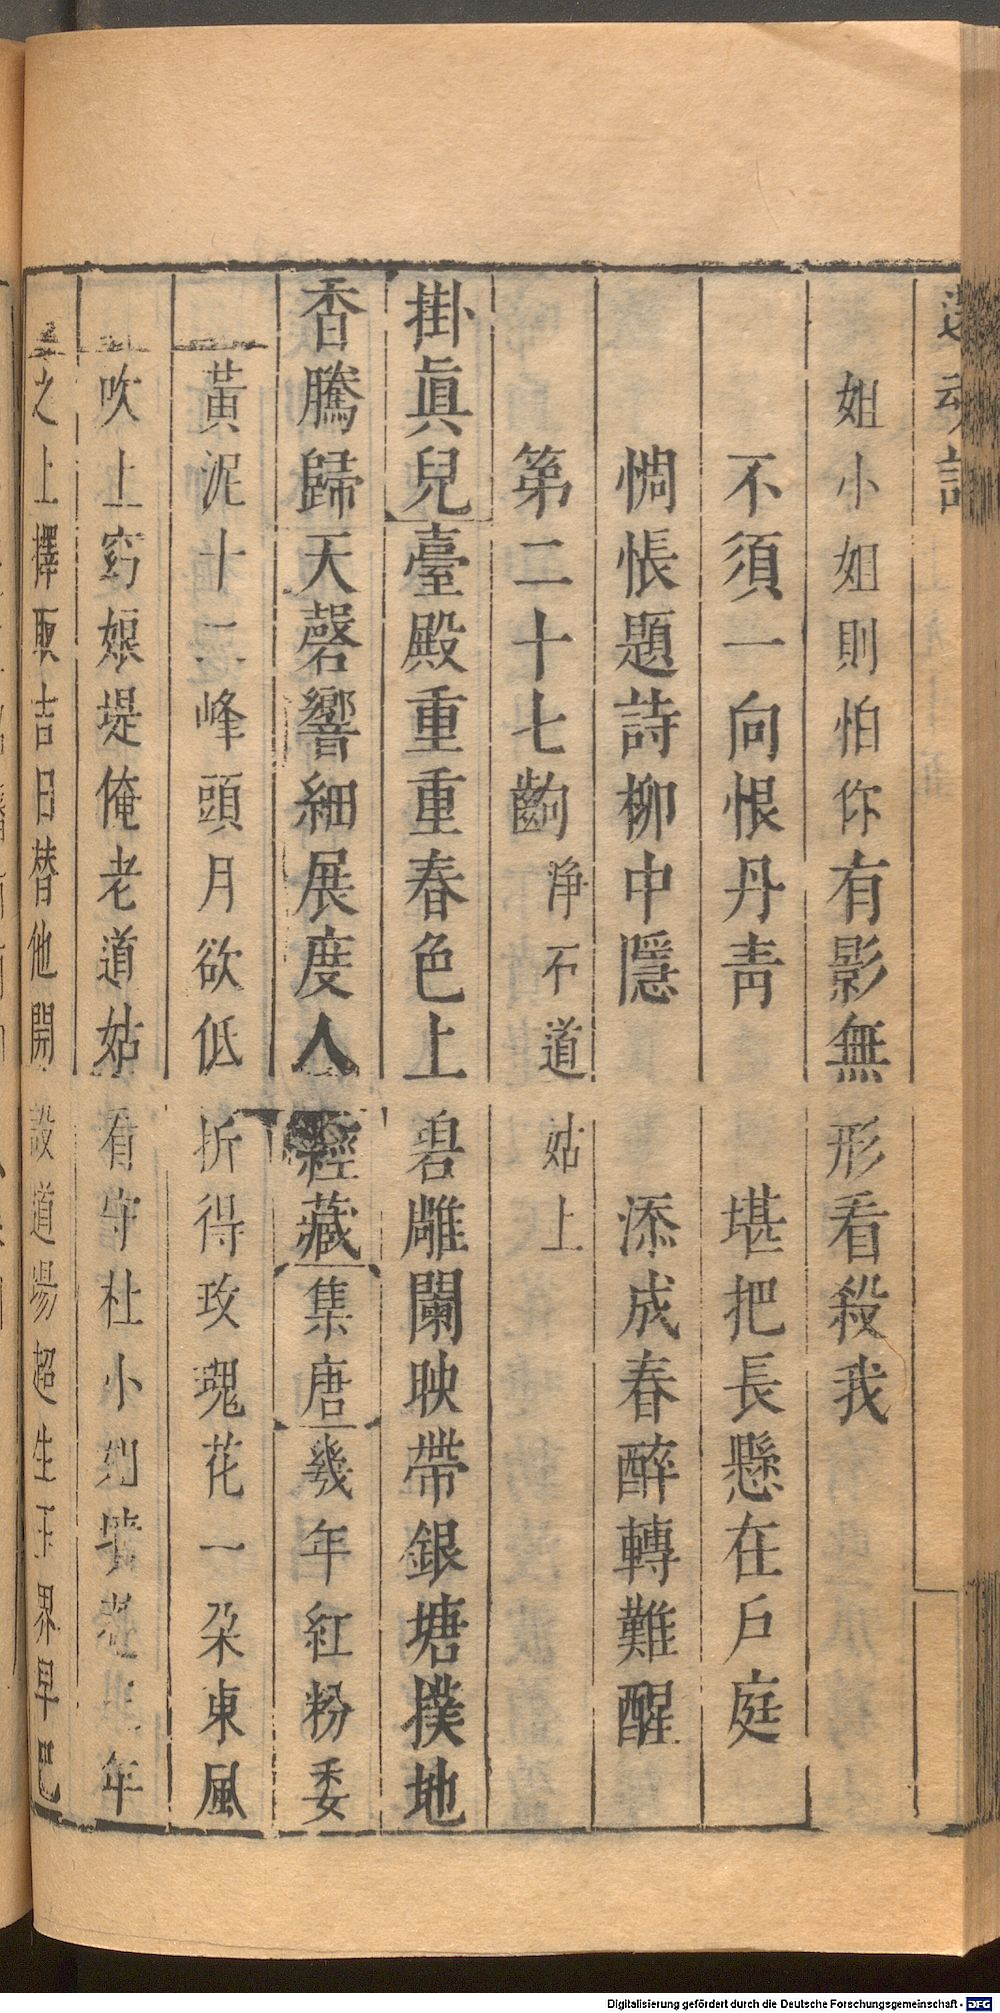 還魂記
姐小姐則怕你有影無形看殺我
不須一向恨丹青 堪把長懸在戶庭
惆悵題詩柳中隱 添成春醉轉難醒
第二十七齣 淨石道姑上
掛眞兒臺殿重重春色上碧雕闌映帶銀塘撲地
香騰歸天磬響細展度人經藏集唐幾年紅粉委
黃泥十二峰頭月欲低折得玫瑰花一朵東風
吹上窈娘堤俺老道姑看守杜小年
之上擇取吉日替他開設道場超生玉界早已
Digitalisierung gefördert durch die Deutsche Forschungsgemeinschaft - DFG